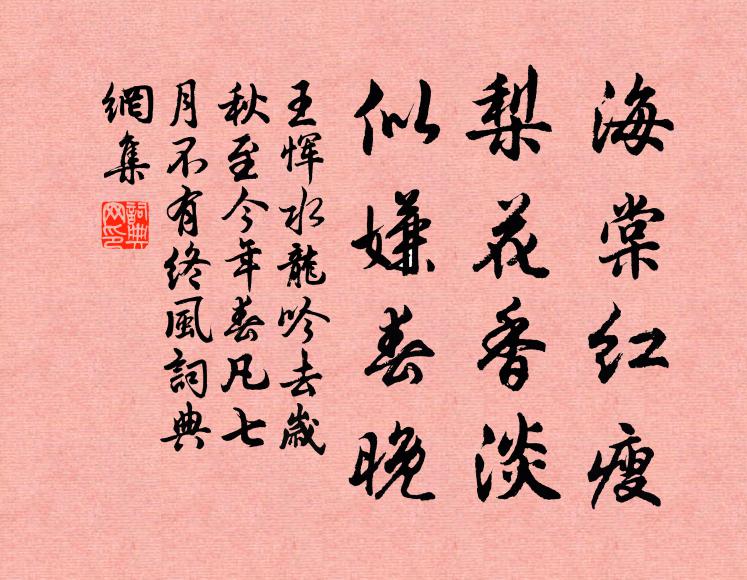 海棠红瘦
梨花香淡
似嫌春晚
王恽水龍吟去歲
秋至今年春凡七
月不有终風詞典
網集
詞典网印